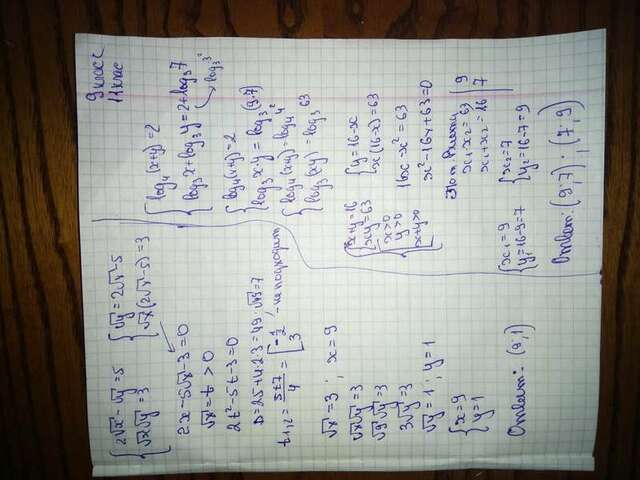 9 класс
11 клас
{2√x - √y = 5
√x√y = 3
{√y = 2√x - 5
√x(2√x - 5) = 3
2x - 5√x - 3 = 0
√x = t > 0
2t² - 5t - 3 = 0
D = 25 + 4·2·3 = 49; √49 = 7
t₁,₂ = (5±7)/4 = [-1/2, - не подходит
3
√x = 3; x = 9
√x√y = 3
√9√y = 3
3√y = 3
√y = 1; y = 1
{x = 9
y = 1
Ответ: (9, 1)
{log₄(x+y) = 2
log₃x + log₃y = 2 + log₃7
log₃3²
{log₄(x+y) = 2
log₃x·y = log₃(9·7)
{log₄(x+y) = log₄4²
log₃(xy) = log₃63
{x+y = 16
xy = 63
x>0
y>0
x+y>0
{y = 16-x
x(16-x) = 63
16x - x² = 63
x² - 16x + 63 = 0
x₁x₂ = 63
x₁+x₂ = 16
9
7
{x₁ = 9
y₁ = 16-9 = 7
{x₂ = 7
y₂ = 16-7 = 9
Ответ: (9; 7); (7, 9)